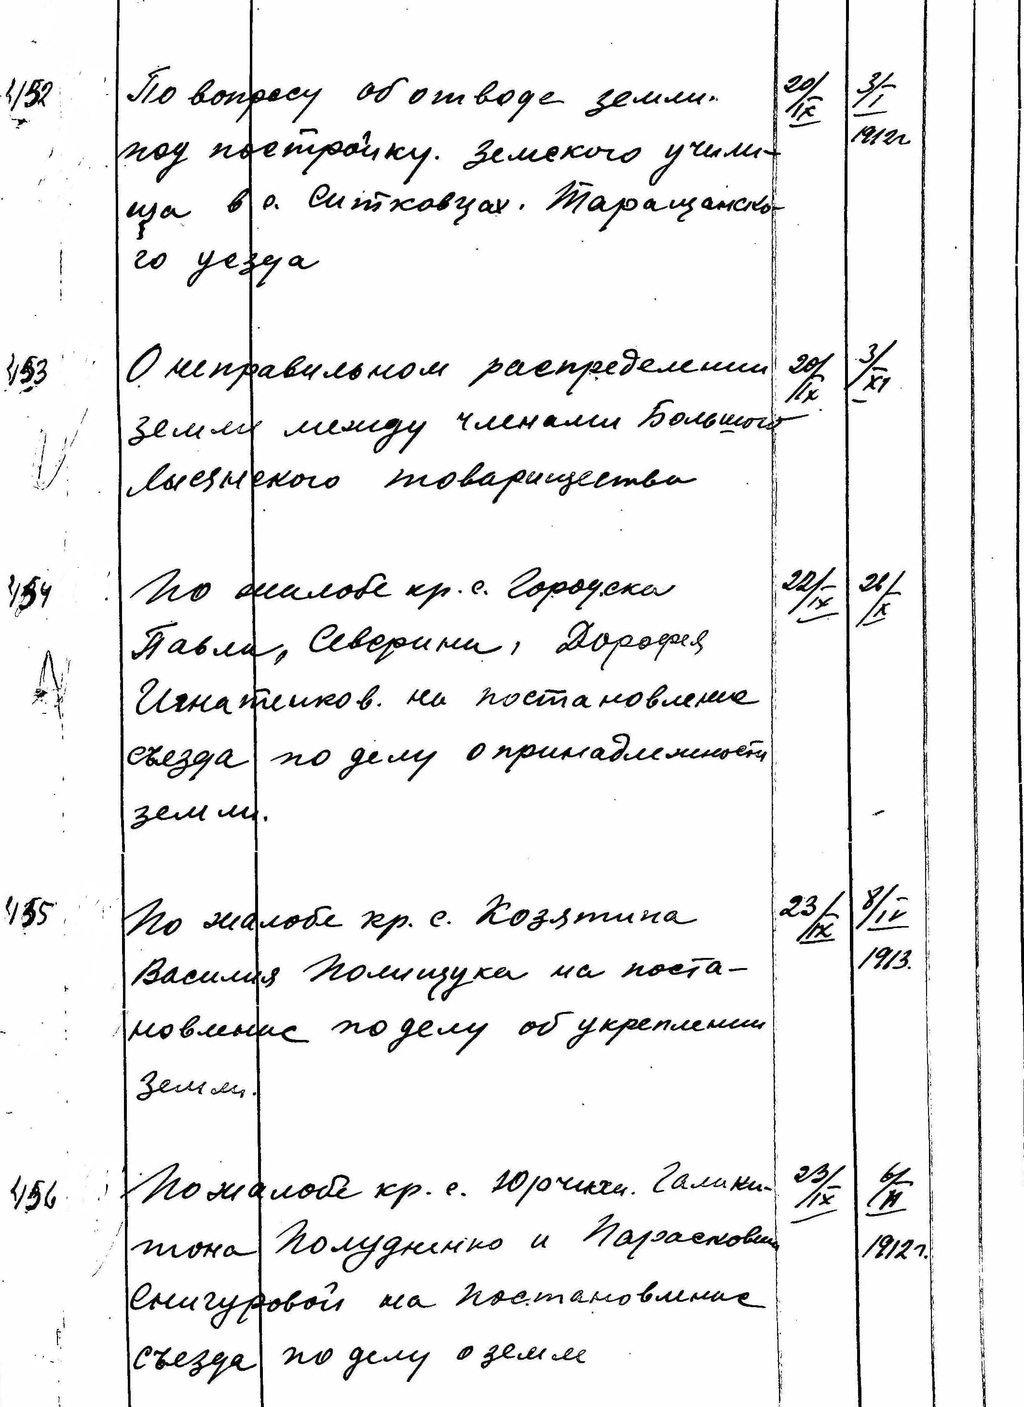 452 По вопросу об отводе земли. 20/IX 3/I
под постройку. земского учили- 1912г
ща в с. Ситковцах. Таращанско-
го уезда
453 О неправильном распределении 20/IX 3/XI
земли между членами Больного
Лысянского товарищества
454 По жалобе кр. с. Городска 22/IX 26/X
Павла, Северина, Дорофея
Игнатенков. на постановление
съезда по делу о принадлежности
земли.
455 По жалобе кр. с. Козятина 23/IX 8/IV
Василия Полищука на поста- 1913.
новление по делу об укреплении
земли.
456 По жалобе кр. с. Юрчихи. Галаки- 23/IX 6/
тона Полудненко и Парасковии 1912г.
Снигуровой на постановление
съезда по делу о земле